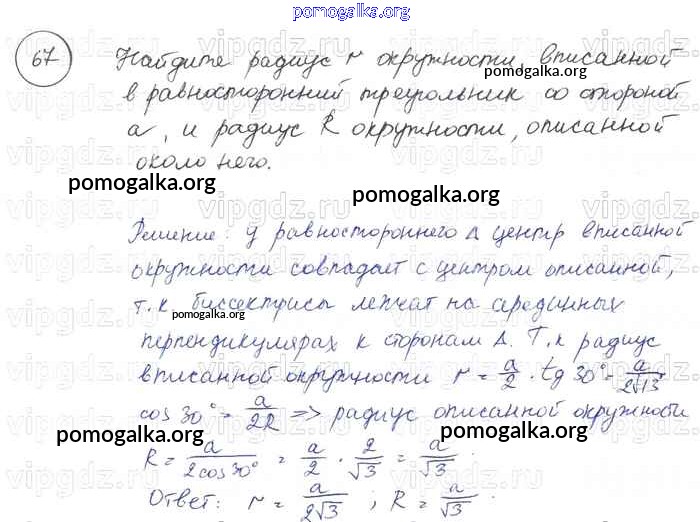 pomogalka.org
67
Найдите радиус r окружности вписанной
pomogalka.org
в равносторонний треугольник со стороной
а, и радиус R окружности, описанной
около него.
pomogalka.org
pomogalka.org
Решение: у равностороннего Δ центр вписанной
окружности совпадает с центром описанной,
т.к биссектрисы лежат на срединных
pomogalka.org
перпендикулярах к сторонам Δ. Т.к радиус
вписанной окружности r = a/2 · tg 30° = a/2√3
cos 30° = a/2R => радиус описанной окружности
pomogalka.org
pomogalka.org
R = a/2cos30° = a/2 · 2/√3 = a/√3
Ответ: r = a/2√3 ; R = a/√3
vipgdz.ru